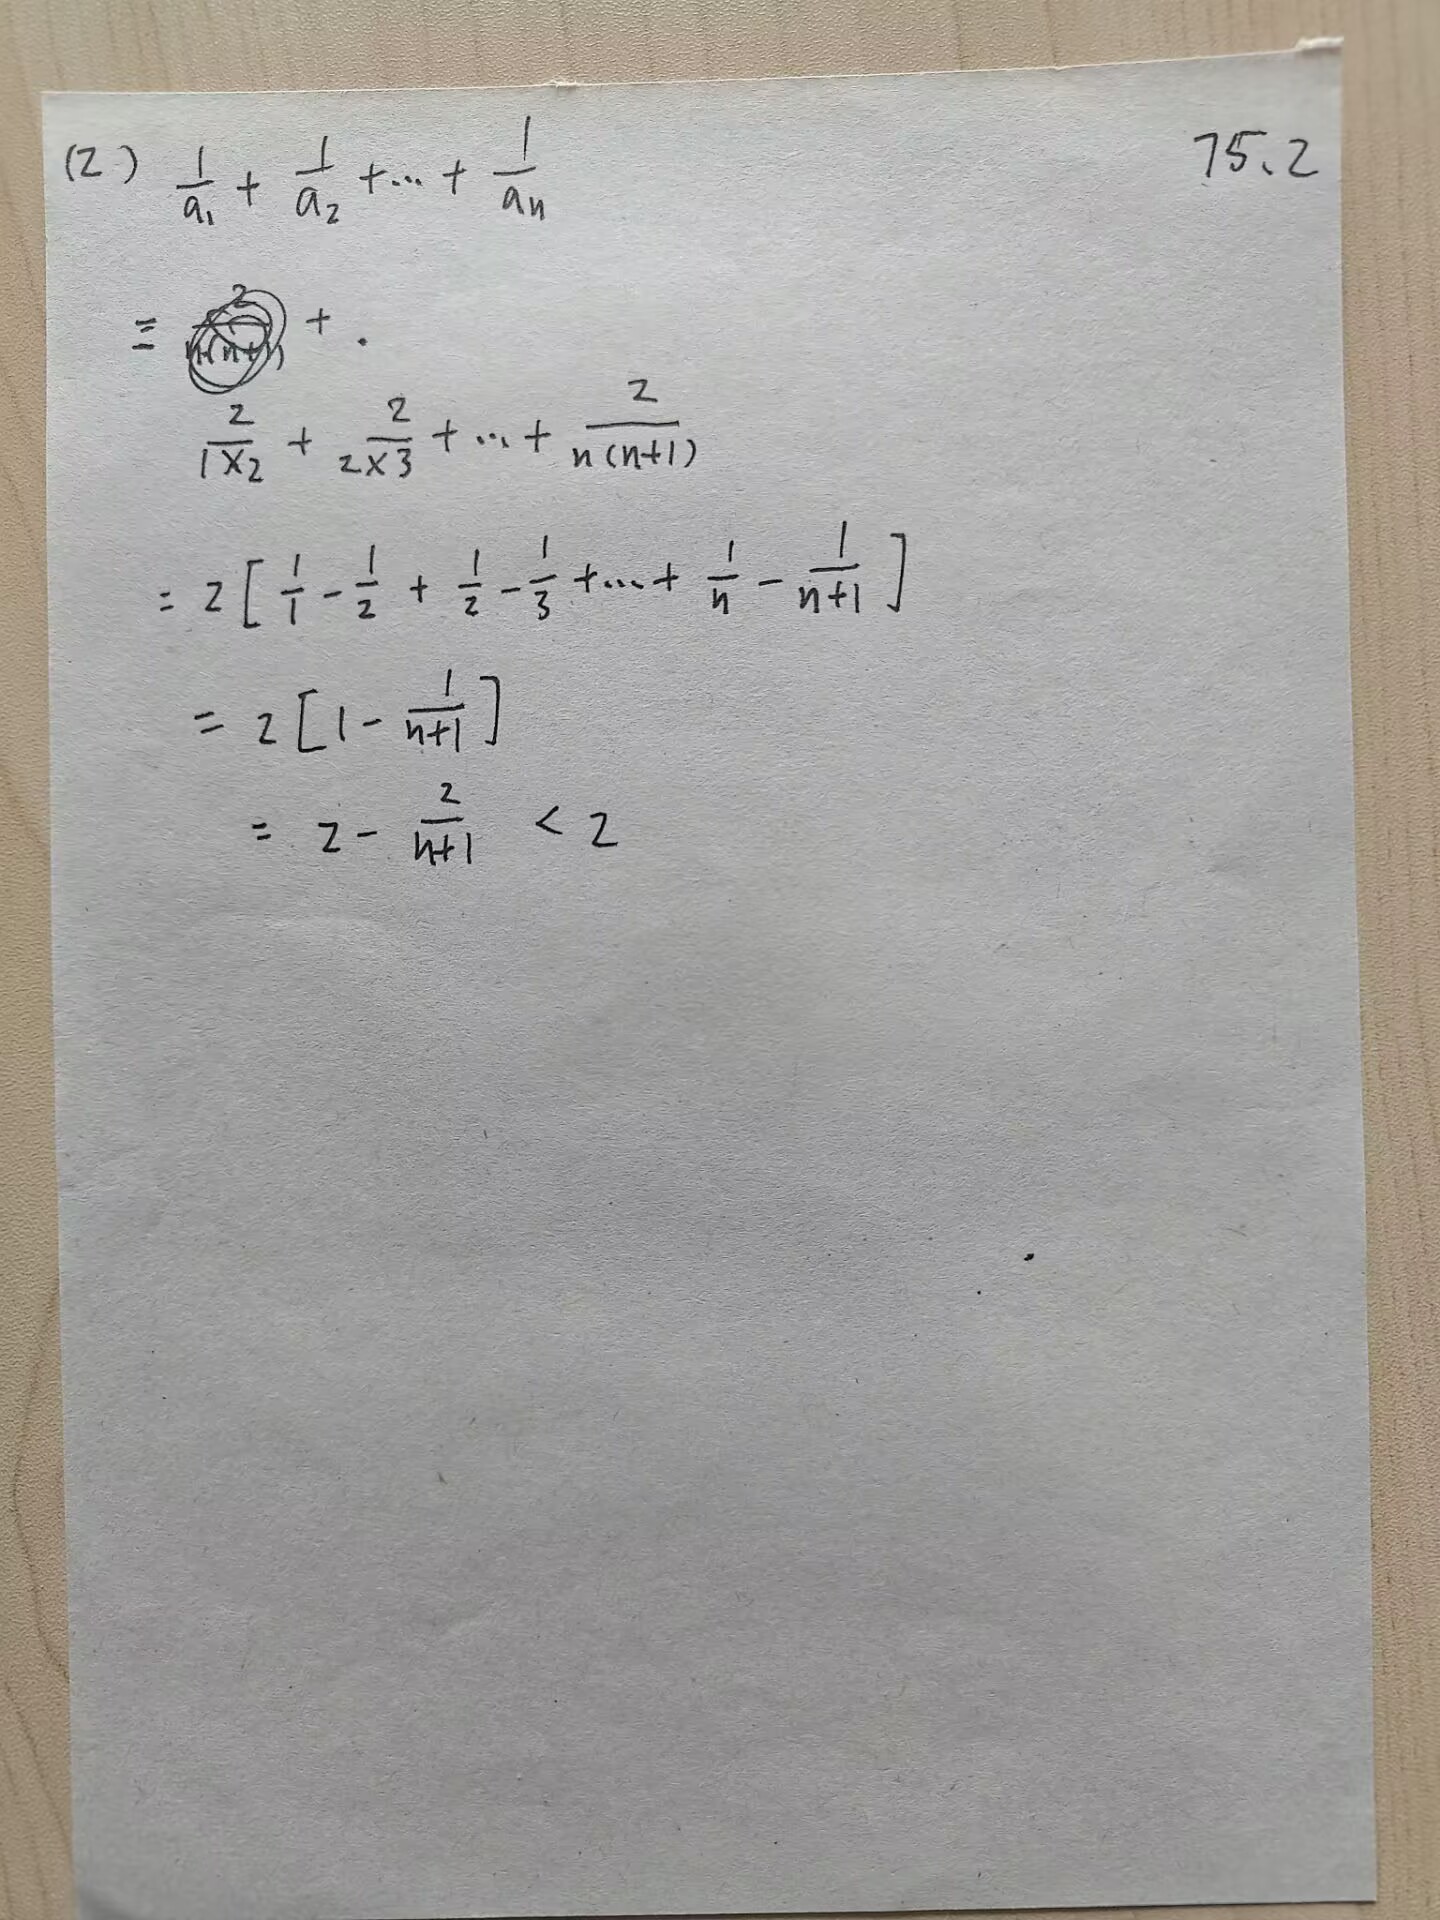 (2) 1/a₁ + 1/a₂ +...+ 1/aₙ
75.2
= +.
2/1×2 + 2/2×3 +...+ 2/n(n+1)
= 2[1/1 - 1/2 + 1/2 - 1/3 +...+ 1/n - 1/n+1]
= 2[1 - 1/n+1]
= 2 - 2/n+1 < 2